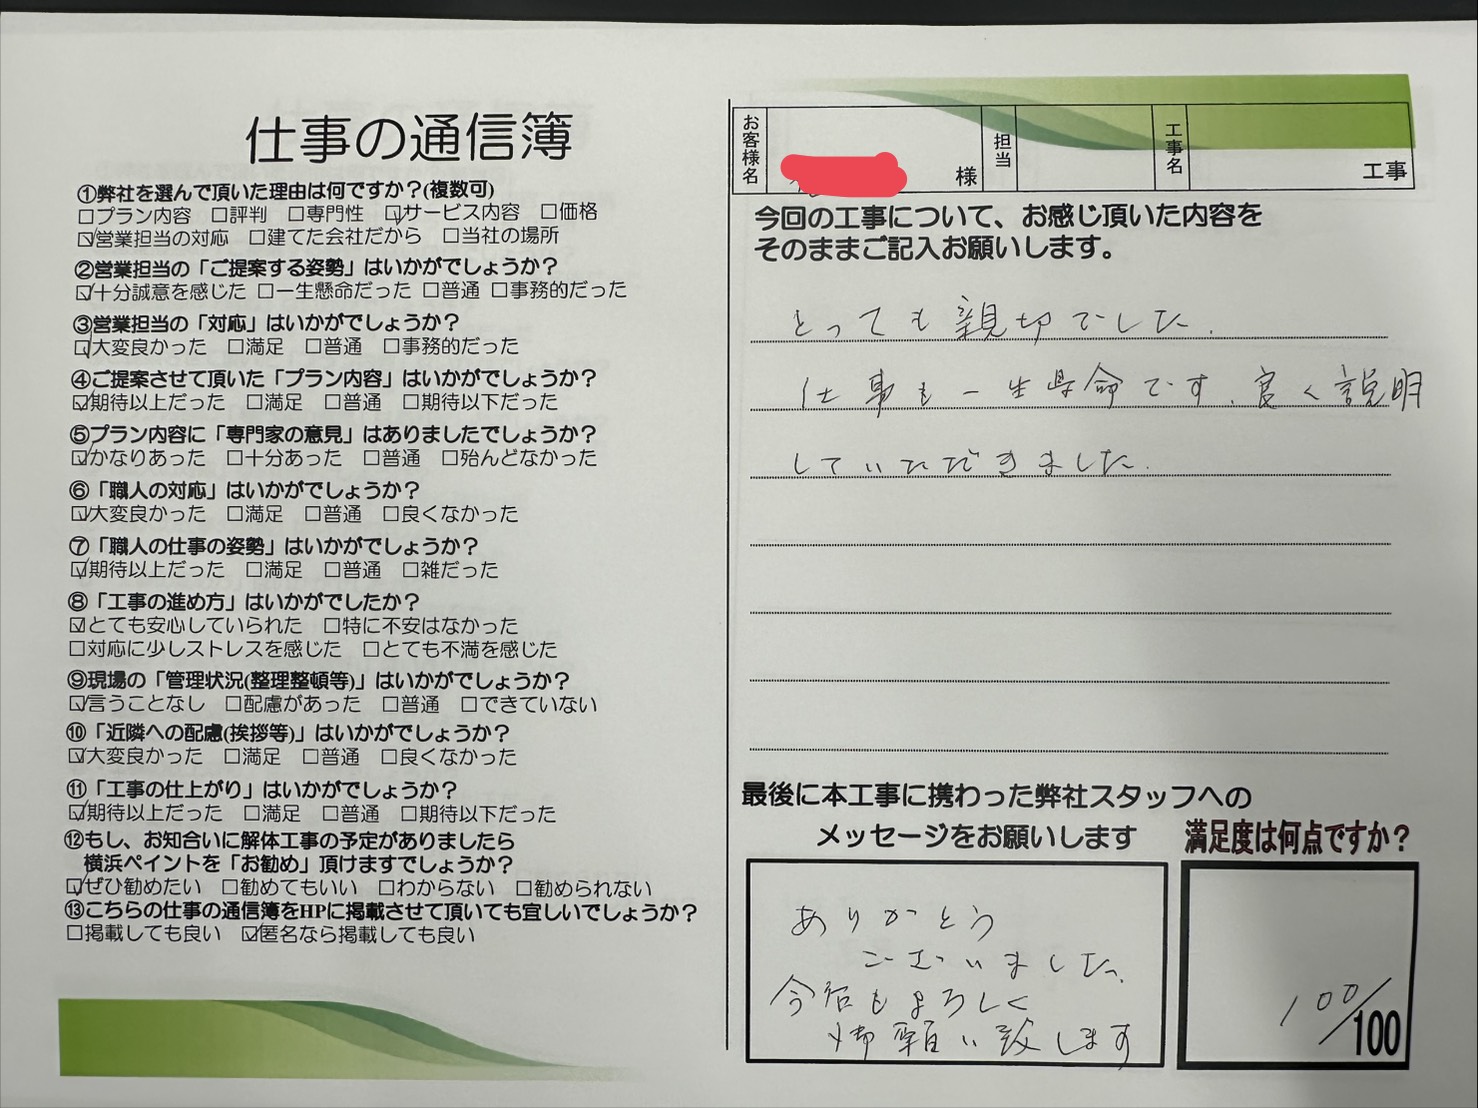 仕事の通信簿
①弊社を選んで頂いた理由は何ですか？(複数可)
□プラン内容 □評判 □専門性 ☑サービス内容 □価格
☑営業担当の対応 □建てた会社だから □当社の場所
②営業担当の「ご提案する姿勢」はいかがでしょうか？
☑十分誠意を感じた □一生懸命だった □普通 □事務的だった
③営業担当の「対応」はいかがでしょうか？
☑大変良かった □満足 □普通 □事務的だった
④ご提案させて頂いた「プラン内容」はいかがでしょうか？
☑期待以上だった □満足 □普通 □期待以下だった
⑤プラン内容に「専門家の意見」はありましたでしょうか？
☑かなりあった □十分あった □普通 □殆んどなかった
⑥「職人の対応」はいかがでしょうか？
☑大変良かった □満足 □普通 □良くなかった
⑦「職人の仕事の姿勢」はいかがでしょうか？
☑期待以上だった □満足 □普通 □雑だった
⑧「工事の進め方」はいかがでしたか？
☑とても安心していられた □特に不安はなかった
□対応に少しストレスを感じた □とても不満を感じた
⑨現場の「管理状況(整理整頓等)」はいかがでしょうか？
☑言うことなし □配慮があった □普通 □できていない
⑩「近隣への配慮(挨拶等)」はいかがでしょうか？
☑大変良かった □満足 □普通 □良くなかった
⑪「工事の仕上がり」はいかがでしょうか？
☑期待以上だった □満足 □普通 □期待以下だった
⑫もし、お知合いに解体工事の予定がありましたら
横浜ペイントを「お勧め」頂けますでしょうか？
☑ぜひ勧めたい □勧めてもいい □わからない □勧められない
⑬こちらの仕事の通信簿をHPに掲載させて頂いても宜しいでしょうか？
□掲載しても良い ☑匿名なら掲載しても良い
お客様名 様 担当 工事名 工事
今回の工事について、お感じ頂いた内容を
そのままご記入お願いします。
とっても親切でした.
仕事も一生県命です.良く説明
していただきました.
最後に本工事に携わった弊社スタッフへの
メッセージをお願いします
ありがとう
ございました.
今后もよろしく
御願い致します
満足度は何点ですか？
100/100